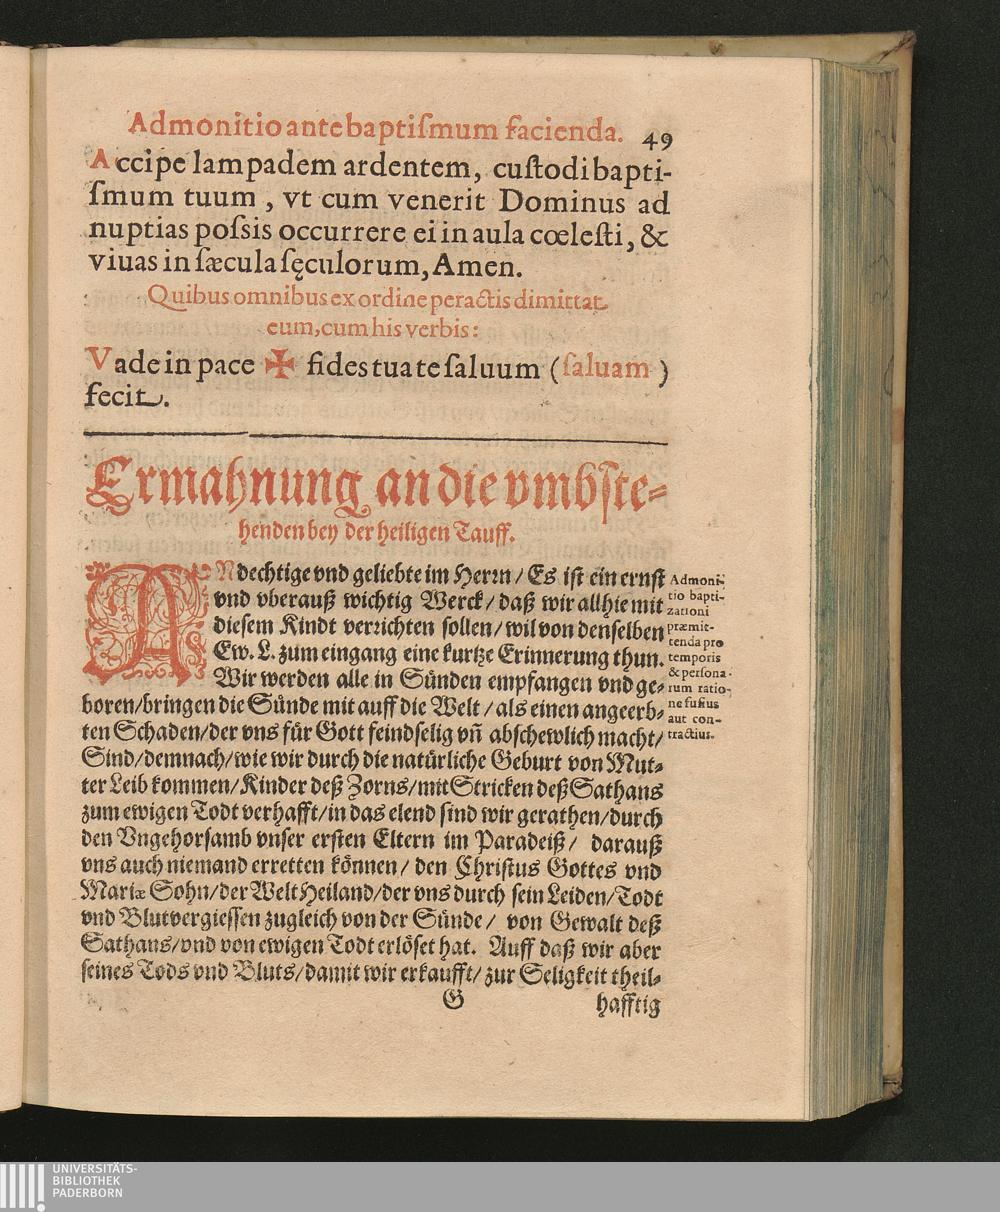 Admonitio ante baptiſmum facienda. 49
Accipe lampadem ardentem, cuſtodi bapti-
ſmum tuum, vt cum venerit Dominus ad
nuptias poſsis occurrere ei in aula cœleſti, &
viuas in ſæcula ſęculorum, Amen.
Quibus omnibus ex ordine peractis dimittat
eum, cum his verbis:
Vade in pace ✠ fides tua te ſaluum (ſaluam)
fecit.
Ermahnung an die vmbſte⸗
henden bey der heiligen Tauff.
ANdechtige vnd geliebte im Herꝛn/ Es iſt ein ernſt
vnd vberauß wichtig Werck/ daß wir allhie mit
dieſem Kindt verꝛichten ſollen/ wil von denſelben
Ew. L. zum eingang eine kurtze Erinnerung thun.
Wir werden alle in Sünden empfangen vnd ge⸗
boren/bringen die Sünde mit auff die Welt/ als einen angeerb⸗
ten Schaden/der vns für Gott feindſelig vñ abſchewlich macht/
Sind/demnach/wie wir durch die natürliche Geburt von Mut⸗
ter Leib kommen/Kinder deß Zorns/mit Stricken deß Sathans
zum ewigen Todt verhafft/in das elend ſind wir gerathen/durch
den Vngehorſamb vnſer erſten Eltern im Paradeiß/ darauß
vns auch niemand erretten können/ den Chriſtus Gottes vnd
Mariæ Sohn/der Welt Heiland/der vns durch ſein Leiden/Todt
vnd Blutvergieſſen zugleich von der Sünde/ von Gewalt deß
Sathans/vnd von ewigen Todt erlöſet hat. Auff daß wir aber
ſeines Tods vnd Bluts/damit wir erkaufft/ zur Seligkeit theil⸗
G hafftig
Admoni-
tio bapti-
zationi
præmit-
tenda pro
temporis
& perſona-
rum ratio-
ne fuſius
aut con-
tractius.
UNIVERSITÄTS-
BIBLIOTHEK
PADERBORN